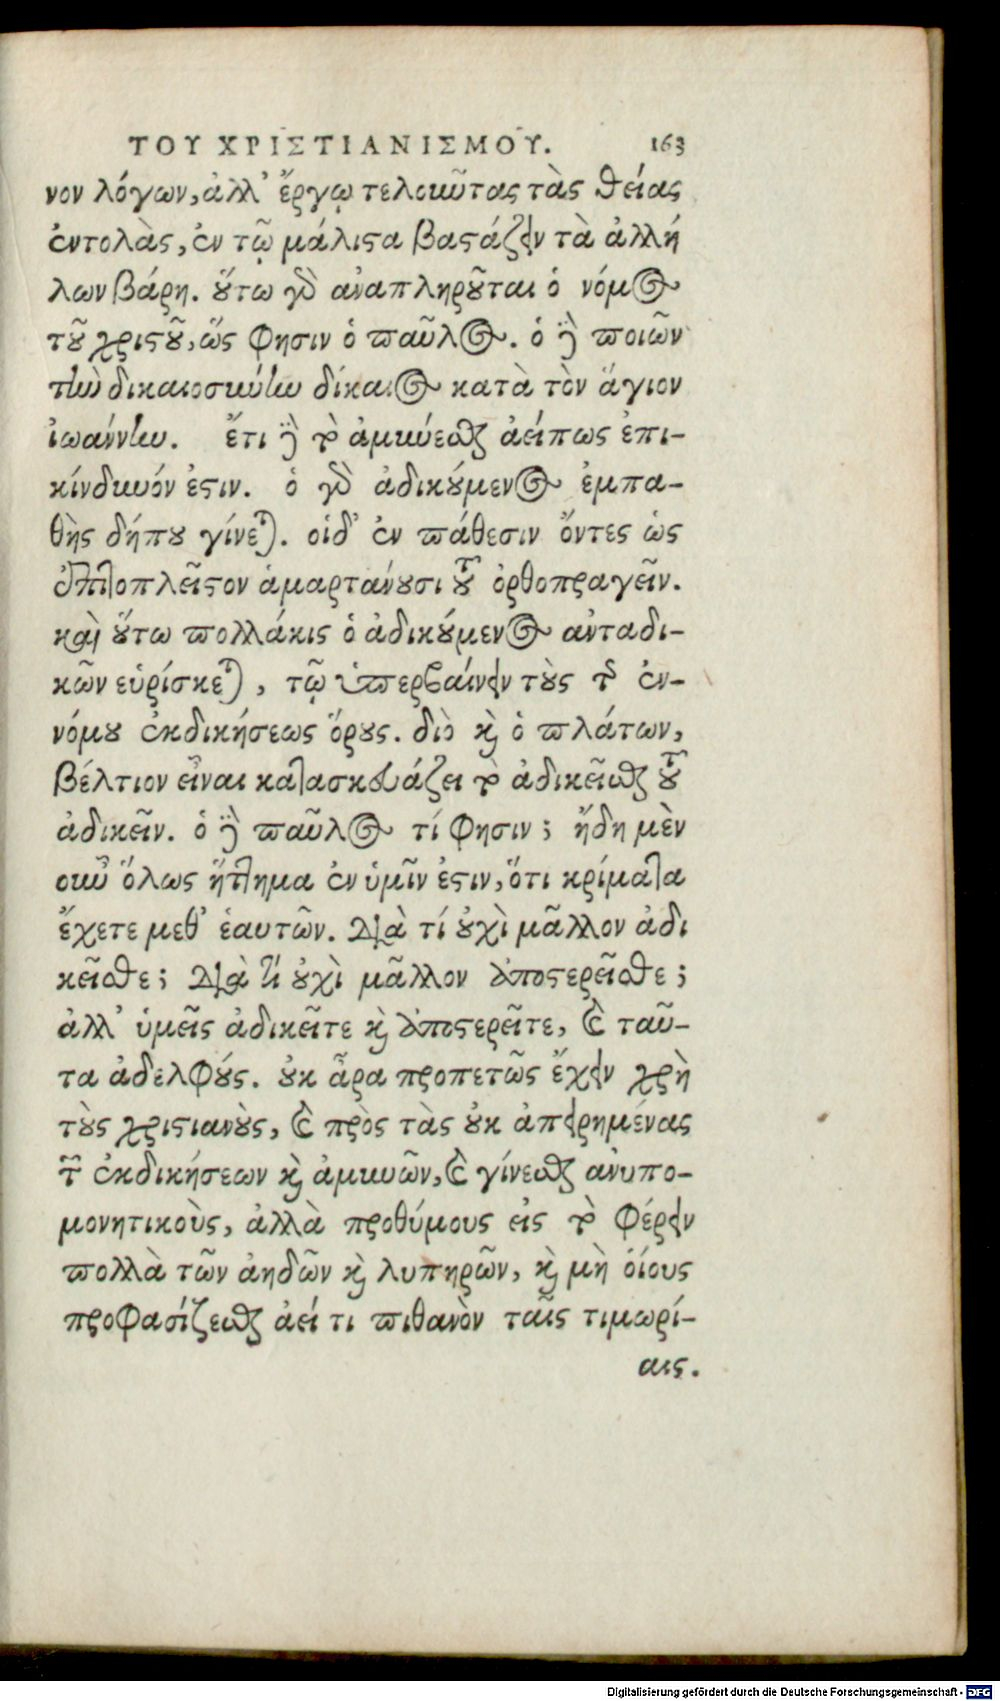 ΤΟΥ ΧΡΙΣΤΙΑΝΙΣΜΟΥ. 163
νον λόγων, ἀλλ' ἔργῳ τελοῦντας τὰς θείας
ἐντολὰς, ἐν τῷ μάλιστα βαστάζειν τὰ ἀλλή
λων βάρη. οὕτω γὸ ἀναπληροῦται ὁ νόμος
τοῦ χριστοῦ, ὥς φησιν ὁ παῦλος. ὁ ἢ ποιῶν
τὴν δικαιοσύνην δίκαιος κατὰ τὸν ἅγιον
ἰωάννην. ἔτι ἢ τὸ ἀμύνεσθαι ἀείπως ἐπι-
κίνδυνόν ἐστιν. ὁ γὸ ἀδικούμενος ἐμπα-
θὴς δήπου γίνεται. οἱδ' ἐν πάθεσιν ὄντες ὡς
ἐπιτοπλεῖστον ἁμαρτάνουσι τοῦ ὀρθοπραγεῖν.
καὶ οὕτω πολλάκις ὁ ἀδικούμενος ἀνταδι-
κῶν εὑρίσκεται, τῷ ὑπερβαίνειν τοὺς τῆς ἐν-
νόμου ἐκδικήσεως ὅρους. διὸ καὶ ὁ πλάτων,
βέλτιον εἶναι κατασκευάζει τὸ ἀδικεῖσθαι τοῦ
ἀδικεῖν. ὁ ἢ παῦλος τί φησιν; ἤδη μὲν
οὖν ὅλως ἥττημα ἐν ὑμῖν ἐστιν, ὅτι κρίματα
ἔχετε μεθ' ἑαυτῶν. διὰ τί οὐχὶ μᾶλλον ἀδι
κεῖσθε; διὰ τί οὐχὶ μᾶλλον ἀποστερεῖσθε;
ἀλλ' ὑμεῖς ἀδικεῖτε καὶ ἀποστερεῖτε, καὶ ταῦ-
τα ἀδελφούς. οὐκ ἆρα προπετῶς ἔχειν χρὴ
τοὺς χριστιανοὺς, καὶ πρὸς τὰς οὐκ ἀπειρημένας
τῶν ἐκδικήσεων καὶ ἀμυνῶν, καὶ γίνεσθαι ἀνυπο-
μονητικοὺς, ἀλλὰ προθύμους εἰς τὸ φέρειν
πολλὰ τῶν ἀηδῶν καὶ λυπηρῶν, καὶ μὴ οἵους
προφασίζεσθαι ἀεί τι πιθανὸν ταῖς τιμωρί-
αις.
Digitalisierung gefördert durch die Deutsche Forschungsgemeinschaft - DFG